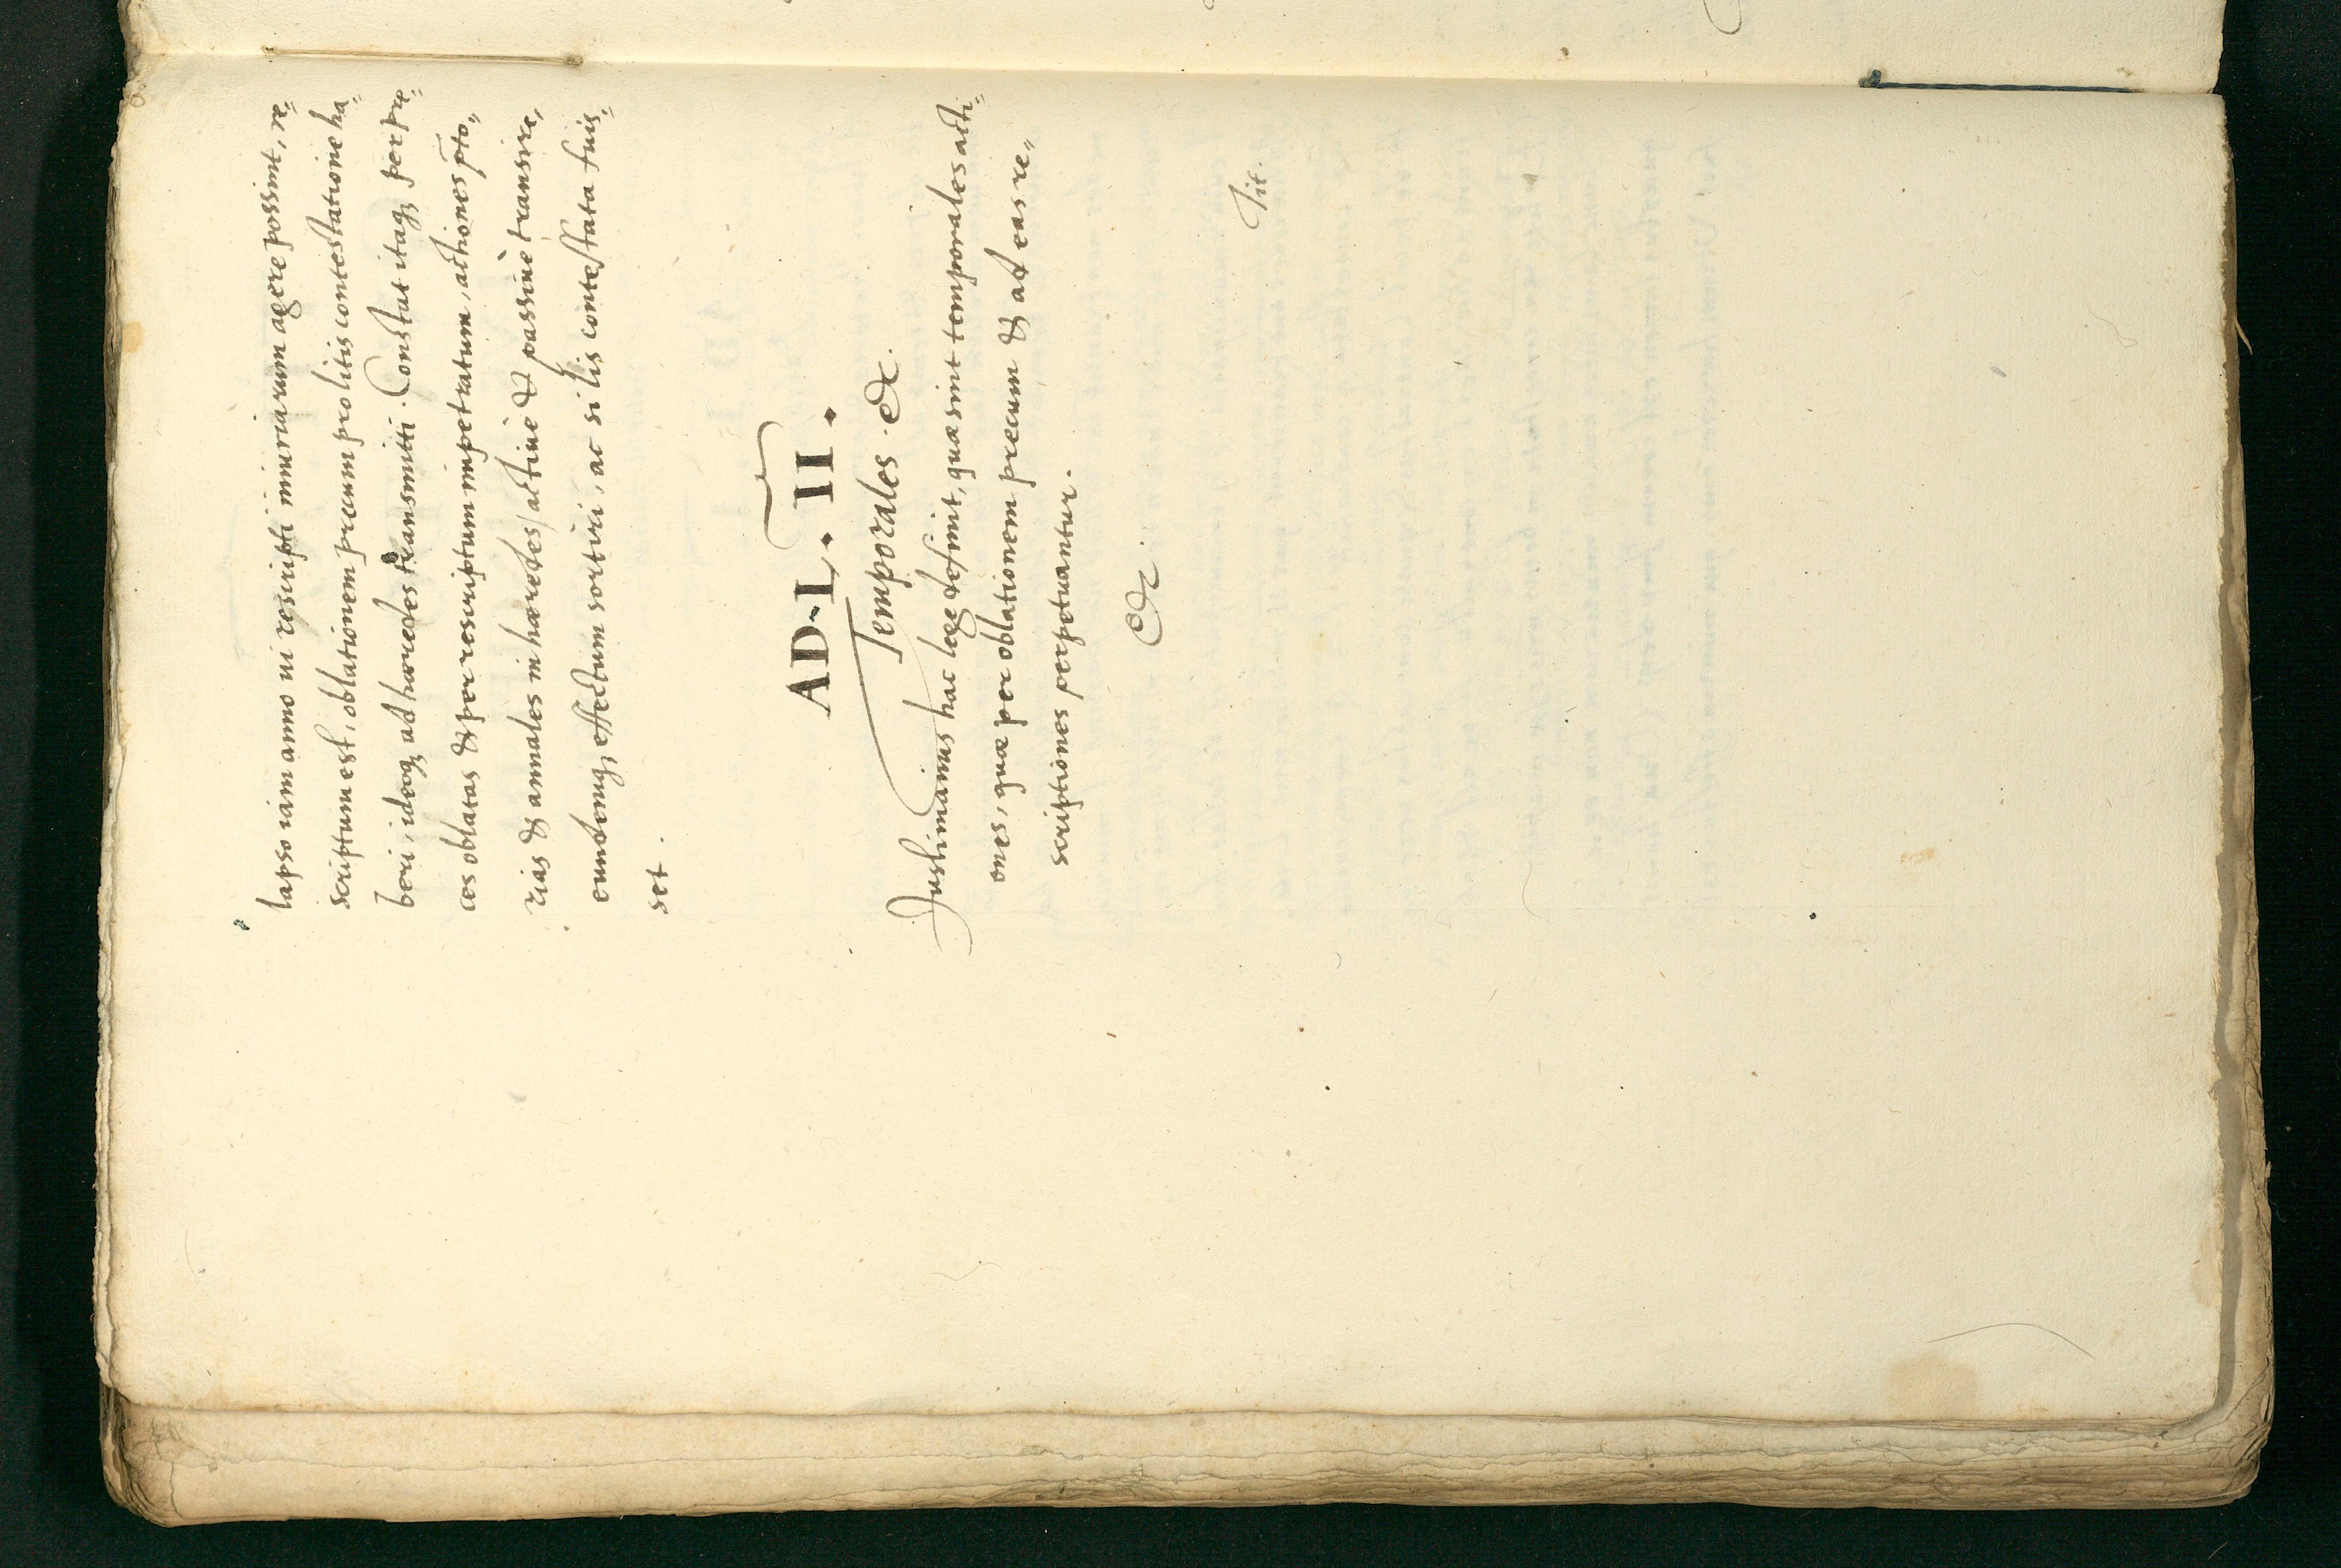 lapso iam anno ui rescripti iniuriarum agere possint, re=
scriptum est, oblationem precum pro litis contestatione ha=
beri, ideoq; ad haeredes transmitti. Constat itaq; per pre=
ces oblatas & per rescriptum impetratum, actiones p̄to„
rias & annales in haeredes, actiuè & passiuè transire,
eundemq; effectum sortiri, ac si lis contestata fuis=
set.
AD L. II.
Temporales &c.
Iustinianus hac lege definit, quae sint temporales acti=
ones, quae per oblationem precum & ad eas re„
scriptiones perpetuantur.
&c.
Tit.